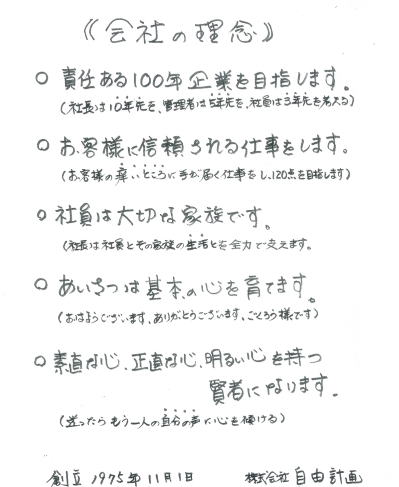 《会社の理念》
○ 責任ある100年企業を目指します。
(社長は10年先を、管理者は5年先を、社員は3年先を考える)
○ お客様に信頼される仕事をします。
(お客様の痒いところに手が届く仕事をし、120点を目指します)
○ 社員は大切な家族です。
(社長は社員とその家族の生活を全力で支えます。
○ あいさつは基本、心を育てます。
(おはようございます、ありがとうございます、ごくろう様です)
○ 素直な心、正直な心、明るい心を持つ
賢者になります。
(迷ったらもう一人の自分の声に心を傾ける)
創立 1975年11月1日
株式会社 自由計画